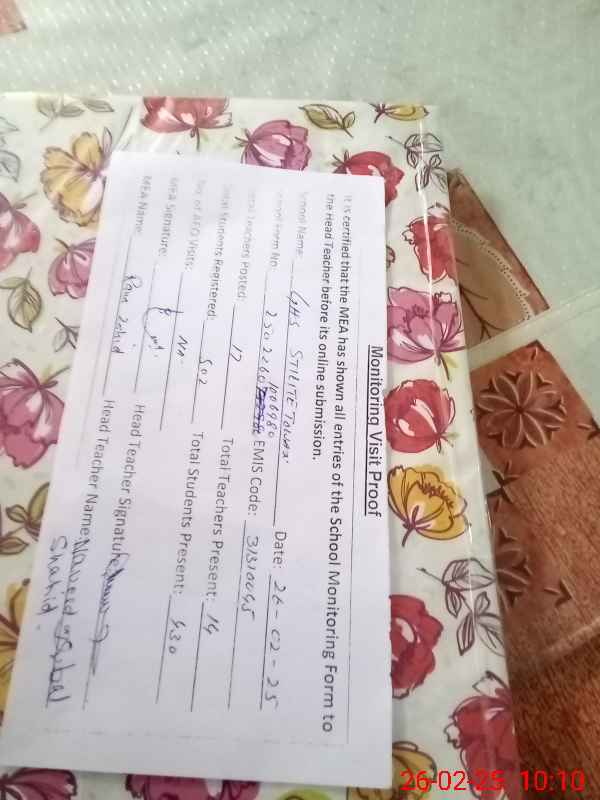 Monitoring Visit Proof
It is certified that the MEA has shown all entries of the School Monitoring Form to
the Head Teacher before its online submission.
School Name: GHS STILITE
School Form No. Date: 26-02-25
Total Teachers Posted: 17 EMIS Code: 31310045
Total Students Registered: 502 Total Teachers Present: 14
No. of AEO Visits: Total Students Present: 430
MEA Signature: Head Teacher Signature
MEA Name: Head Teacher Name:
Shahid.
26-02-25 10:10